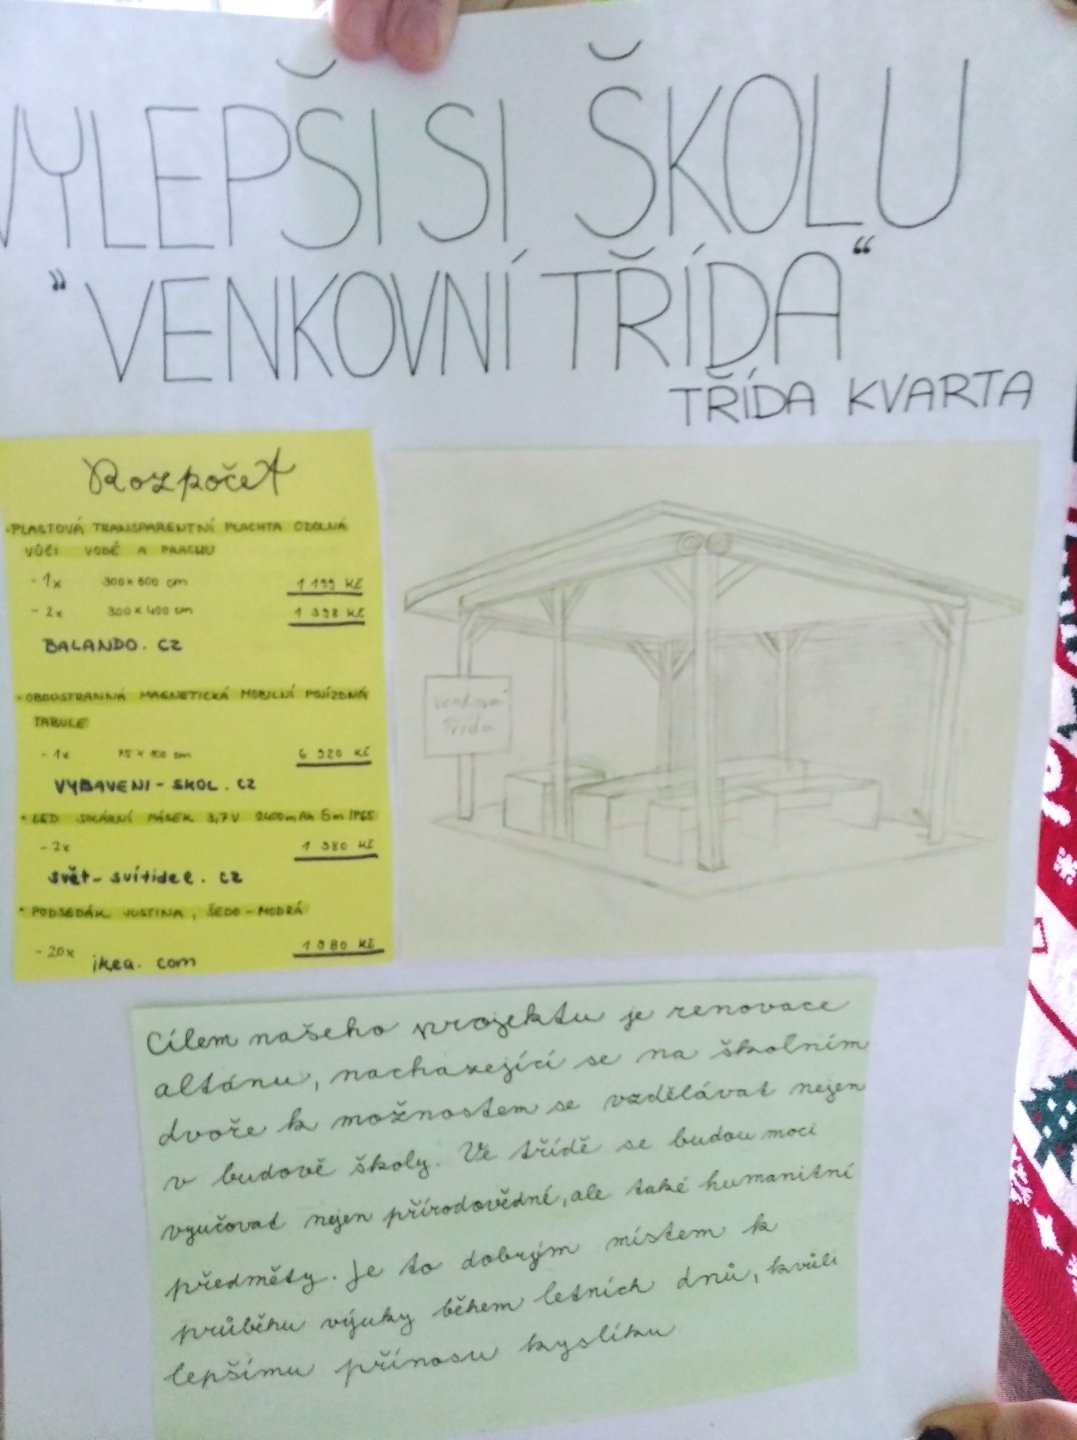 VYLEPŠI SI ŠKOLU
"VENKOVNÍ TŘÍDA"
TŘÍDA KVARTA
Rozpočet
-PLASTOVÁ TRANSPARENTNÍ PLACHTA ODOLNÁ
VŮČI VODĚ A PRACHU
-1x 300x600 cm 1 199 Kč
-2x 300x400 cm 1 398 Kč
BALANDO.CZ
•OBOUSTRANNÁ MAGNETICKÁ MOBILNÍ POJÍZDNÁ
TABULE
-1x 75x100 cm 6 920 Kč
VYBAVENI-SKOL.CZ
•LED SOLÁRNÍ PÁSEK 3,7V 2400mAh 5m IP65
-2x 1 980 Kč
svět-svítidel.cz
•PODSEDÁK JUSTINA, ŠEDO-MODRÁ
-20x 1 980 Kč
ikea.com
Venkovní
Třída
Cílem našeho projektu je renovace
altánu, nacházející se na školním
dvoře k možnostem se vzdělávat nejen
v budově školy. Ve třídě se budou moci
vyučovat nejen přírodovědné, ale také humanitní
předměty. Je to dobrým místem k
průběhu výuky během letních dnů, kvůli
lepšímu přínosu kyslíku